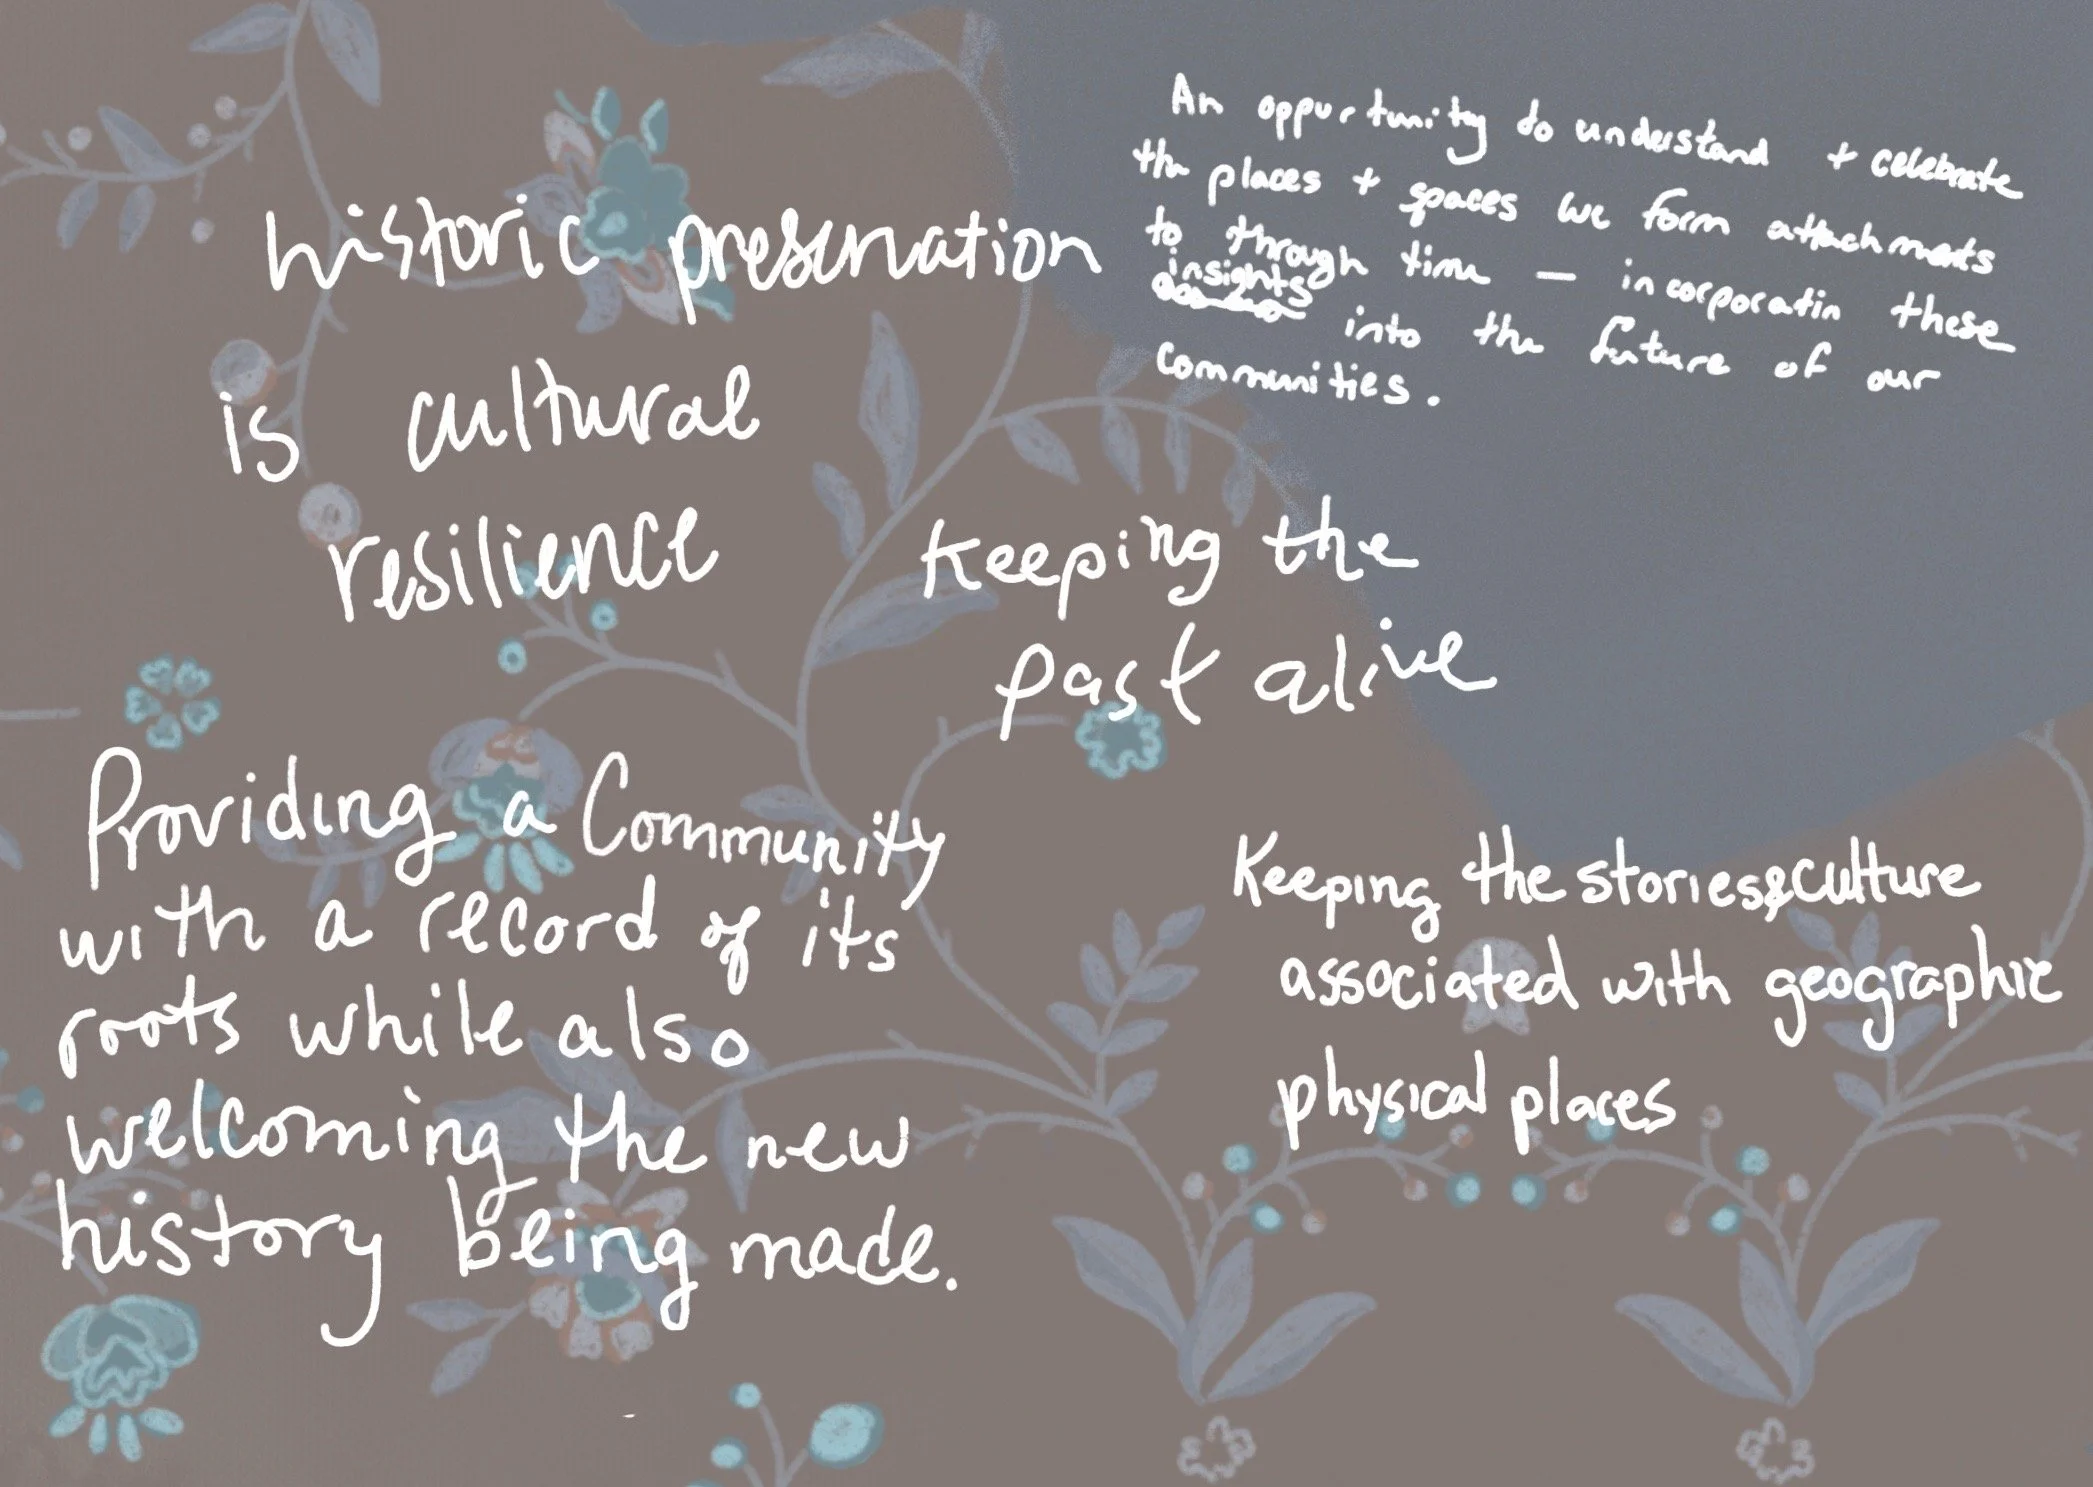 historic preservation
is cultural
resilience
An oppurtunity to understand + celebrate
the places + spaces we form attachments
to through time — incorporatin these
insights into the future of our
communities.
Keeping the
past alive
Providing a Community
with a record of its
roots while also
welcoming the new
history being made.
Keeping the stories & culture
associated with geographic
physical places